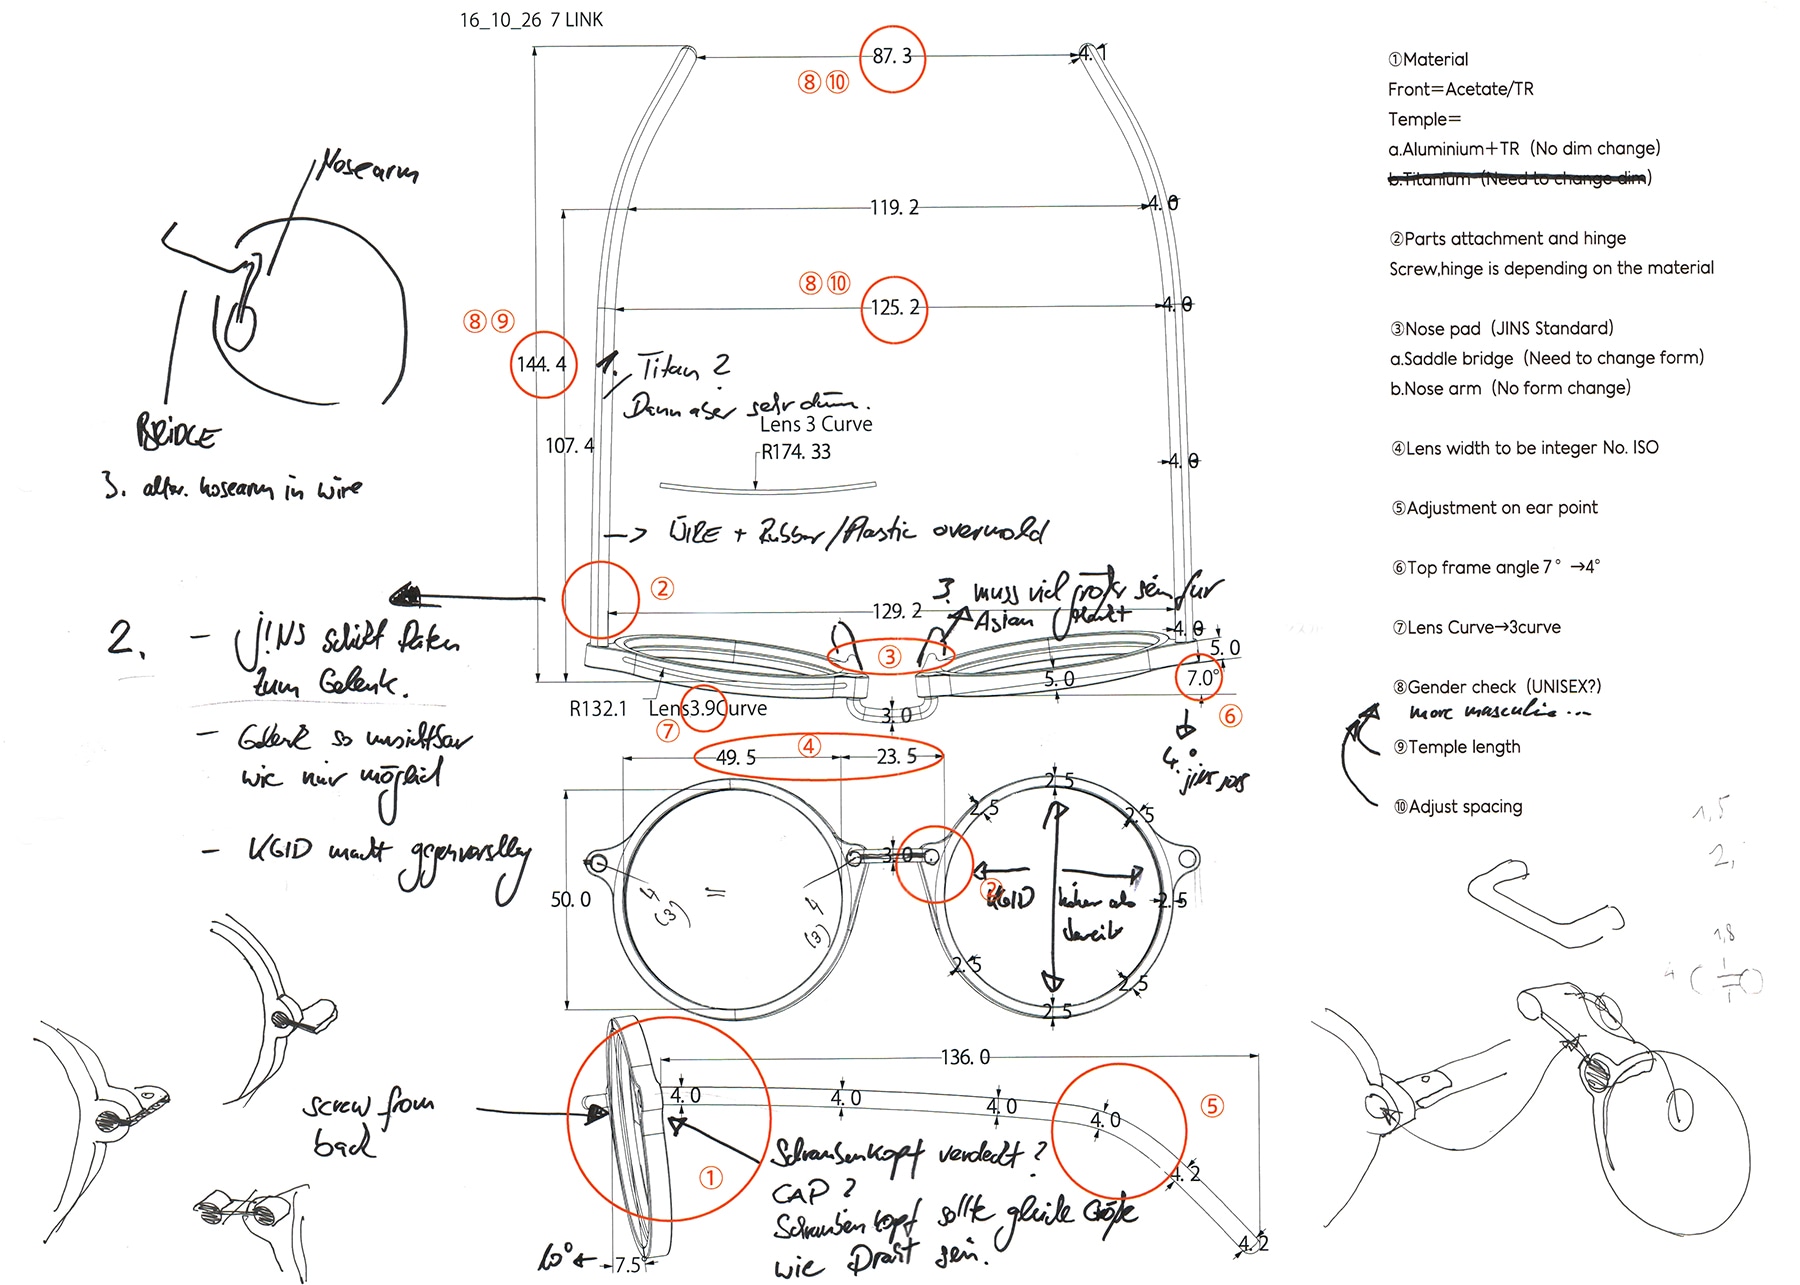 16_10_26 7 LINK
87.3
4.1
⑧⑩
119.2
4.0
⑧⑩
125.2
4.0
⑧⑨
144.4
107.4
Nosearm
BRIDGE
3. altr. nosearm in wire
1. Titan ?
Dann aber sehr dünn.
Lens 3 Curve
R174.33
4.0
-> WIRE + Rubber/Plastic overmold
②
3. muss viel größer sein für
Asian Markt
129.2
4.0
5.0
③
7.0°
5.0
⑥
R132.1 Lens3.9Curve
⑦
3.0
4°
④
49.5
23.5
2. - JINS schickt Daten
zum Gelenk.
- Gelenk so unsichtbar
wie nur möglich
- KGID macht gegenvorschlag
2.5
2.5
2.5
2.5
2.5
2.5
2.5
3.0
②
50.0
4
(3)
=
4
(3)
KGID
höher als
breit
136.0
4.0
4.0
4.0
4.0
4.2
4.2
⑤
①
screw from
back
Schraubenkopf verdeckt ?
CAP ?
Schraubenkopf sollte gleiche Größe
wie Draht sein.
10°
7.5°
①Material
Front=Acetate/TR
Temple=
a.Aluminium+TR (No dim change)
b.Titanium (Need to change dim)
②Parts attachment and hinge
Screw,hinge is depending on the material
③Nose pad (JINS Standard)
a.Saddle bridge (Need to change form)
b.Nose arm (No form change)
④Lens width to be integer No. ISO
⑤Adjustment on ear point
⑥Top frame angle 7° →4°
⑦Lens Curve→3curve
⑧Gender check (UNISEX?)
more masculin ...
⑨Temple length
⑩Adjust spacing
1,5
2,
1,8
4